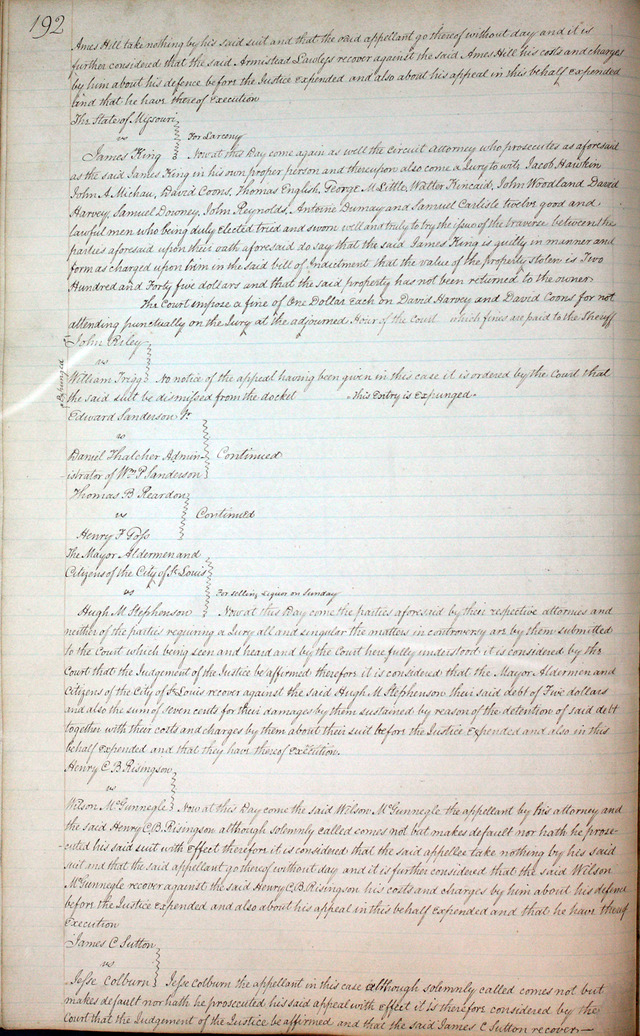 192
Ames Hill take nothing by his said suit and that the said appellant go thereof without day and it is
further considered that the said Armistead Lawless recover against the said Ames Hill his costs and charges
by him about his defence before the Justice expended and also about his appeal in this behalf expended
and that he have thereof Execution
The State of Missouri
vs
For Larceny
James King
Now at this Day come again as well the Circuit Attorney who prosecutes as aforesaid
as the said James King in his own proper person and thereupon also come a Jury to wit Jacob Hawken
John A Michau, David Coons, Thomas English, George M Little, Walter Kincaid, John Woodland David
Harvey, Samuel Downey, John Reynolds, Antoine Dumay and Samuel Carlisle twelve good and
lawful men who being duly elected tried and sworn well and truly to try the issue of the traverse between the
parties aforesaid upon their oath aforesaid do say that the said James King is guilty in manner and
form as charged upon him in the said bill of Indictment that the value of the property stolen is Two
Hundred and Forty five dollars and that the said property has not been returned to the owner
The Court impose a fine of One Dollar Each on David Harvey and David Coons for not
attending punctually on the Jury at the adjourned Hour of the Court which fines are paid to the Sheriff
John Riley
vs
Expunged
William Trigg
No notice of the appeal having been given in this case it is ordered by the Court that
the said suit be dismissed from the docket This Entry is Expunged.
Edward Sanderson Jr.
vs
Daniel Thatcher Admin-
Continued
istrator of Wm P. Sanderson
Thomas B Reardon
vs
Continued
Henry F Goss
The Mayor Aldermen and
Citizens of the City of St Louis
vs
For selling Liquor on Sunday
Hugh M. Stephenson
Now at this Day come the parties aforesaid by their respective attornies and
neither of the parties requiring a Jury all and singular the matters in controversy are by them submitted
to the Court which being seen and heard and by the Court here fully understood it is considered by the
Court that the Judgement of the Justice be affirmed therefore it is considered that the Mayor Aldermen and
Citizens of the City of St Louis recover against the said Hugh M. Stephenson their said debt of Five dollars
and also the sum of seven cents for their damages by them sustained by reason of the detention of said debt
together with their costs and charges by them about their suit before the Justice Expended and also in this
behalf expended and that they have thereof execution.
Henry C. B. Risingson
vs
Wilson McGunnegle
Now at this Day come the said Wilson McGunnegle the appellant by his attorney and
the said Henry C. B. Risingson although solemnly called comes not but makes default nor hath he prose-
cuted his said suit with effect therefore it is considered that the said appellee take nothing by his said
suit and that the said appellant go thereof without day and it is further considered that the said Wilson
McGunnegle recover against the said Henry C. B. Risingson his costs and charges by him about his defence
before the Justice expended and also about his appeal in this behalf expended and that he have thereof
Execution
James C Sutton
vs
Jesse Colburn
Jesse Colburn the appellant in this case although solemnly called comes not but
makes default nor hath he prosecuted his said appeal with effect it is therefore considered by the
Court that the Judgement of the Justice be affirmed and that the said James C Sutton recover